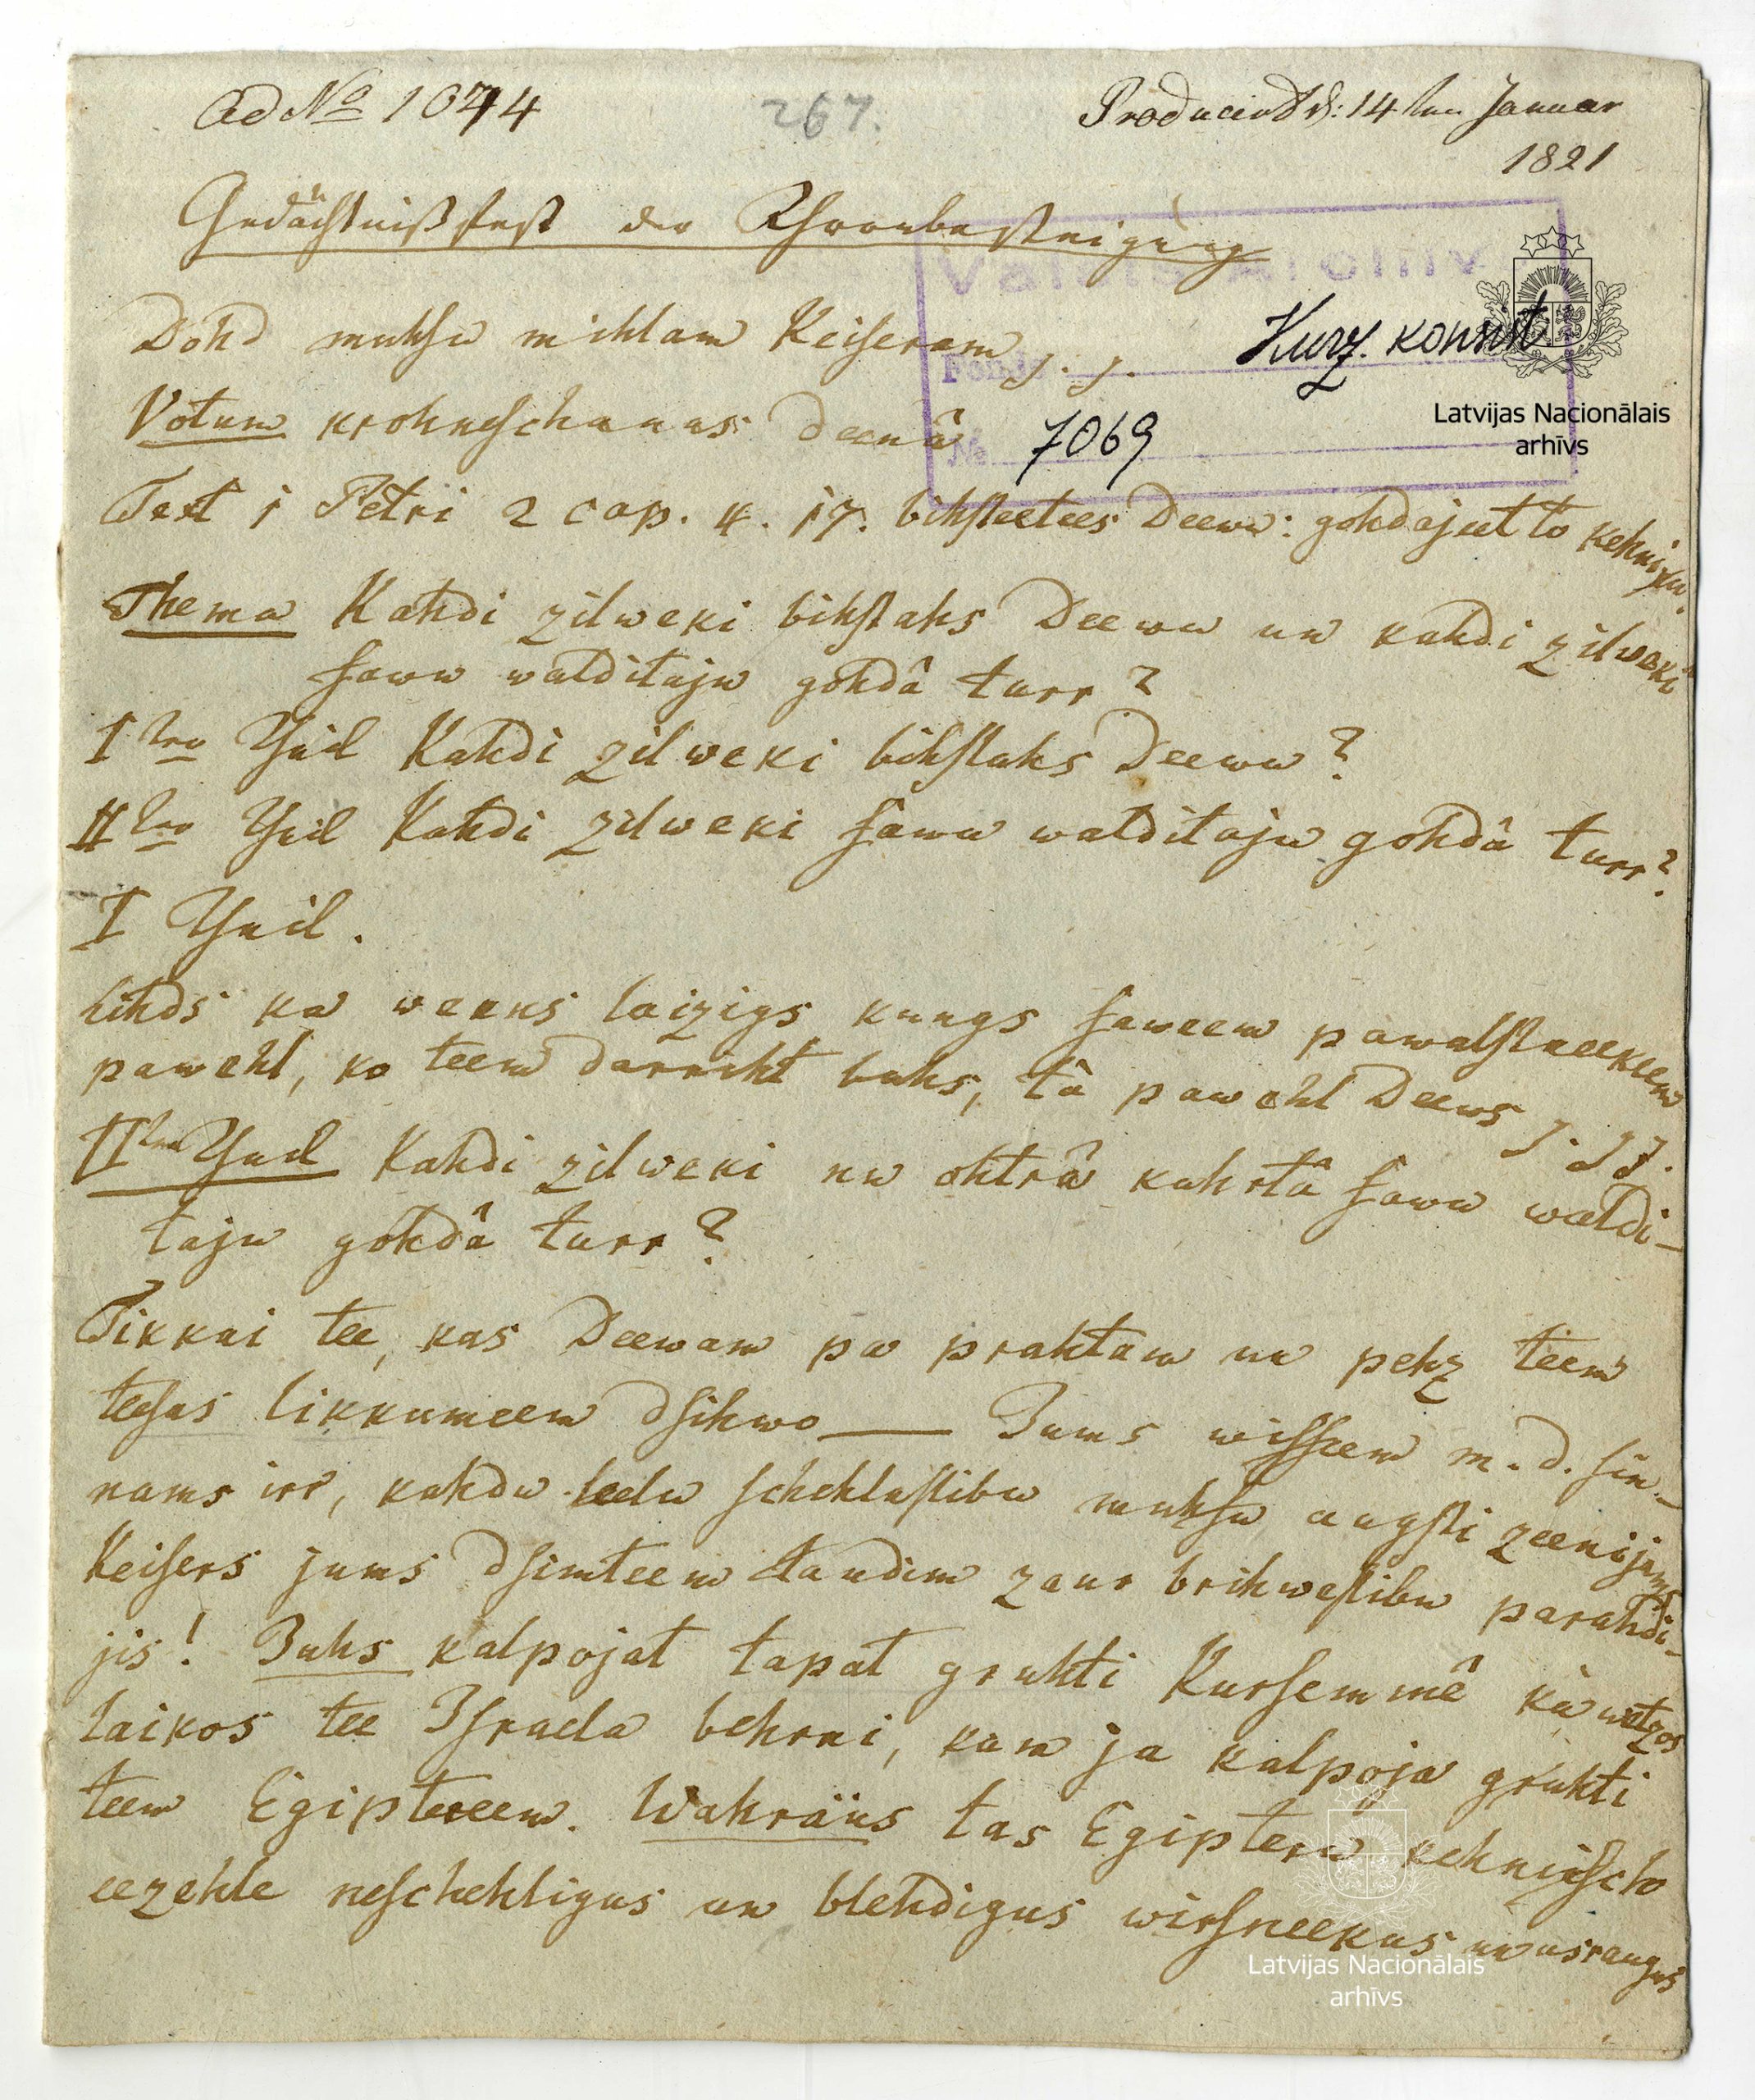 Ad No 1044
267.
Producirt d: 14ten Januar
1821
Gedächtnißfest der Thronbesteigung
Valsts Arhīvs
Dohd muhsu mihlam Keiseram J. J.
Fonds Kurz. konsist
Latvijas Nacionālais
arhīvs
Votum krohneschanas deenâ
№ 7069
Text 1 Petri 2 cap. v. 17. bihsteetees Deewu: gohdajeet to kehninu.
Thema Kahdi zilweki bihstahs Deewu un kahdi zilweki
sawu walditaju gohdâ turr?
Iter Theil Kahdi zilweki bihstahs Deewu?
IIter Theil Kahdi zilweki sawu walditaju gohdâ turr?
I Theil.
Lihds ka weens laizigs kungs saweem pawalstneekeem
pawehl, ko teem darriht buhs, tâ pawehl Deews J. JJ.
IIter Theil Kahdi zilweki un ohtrâ kahrtâ sawu waldi-
taju gohdâ turr?
Tikkai tee, kas Deewam pa prahtam un pehz teem
teesas likkumeem dsihwo — Jums wisseem m. d. sin-
nams irr, kahdu leelu schehlastibu muhsu augsti zeenijams
Keisers jums dsimteem laudim zaur brihwestibu parahdi-
jis! Juhs kalpojat tapat gruhti Kursemmê kà wetzos
laikos tee Israela behrni, kam ja kalpoja gruhti
teem Egiptereem. Wahraüs tas Egipteru kehnisch to
eezehle neschehligus un blehdigus wirsneekus un usraugus
Latvijas Nacionālais
arhīvs